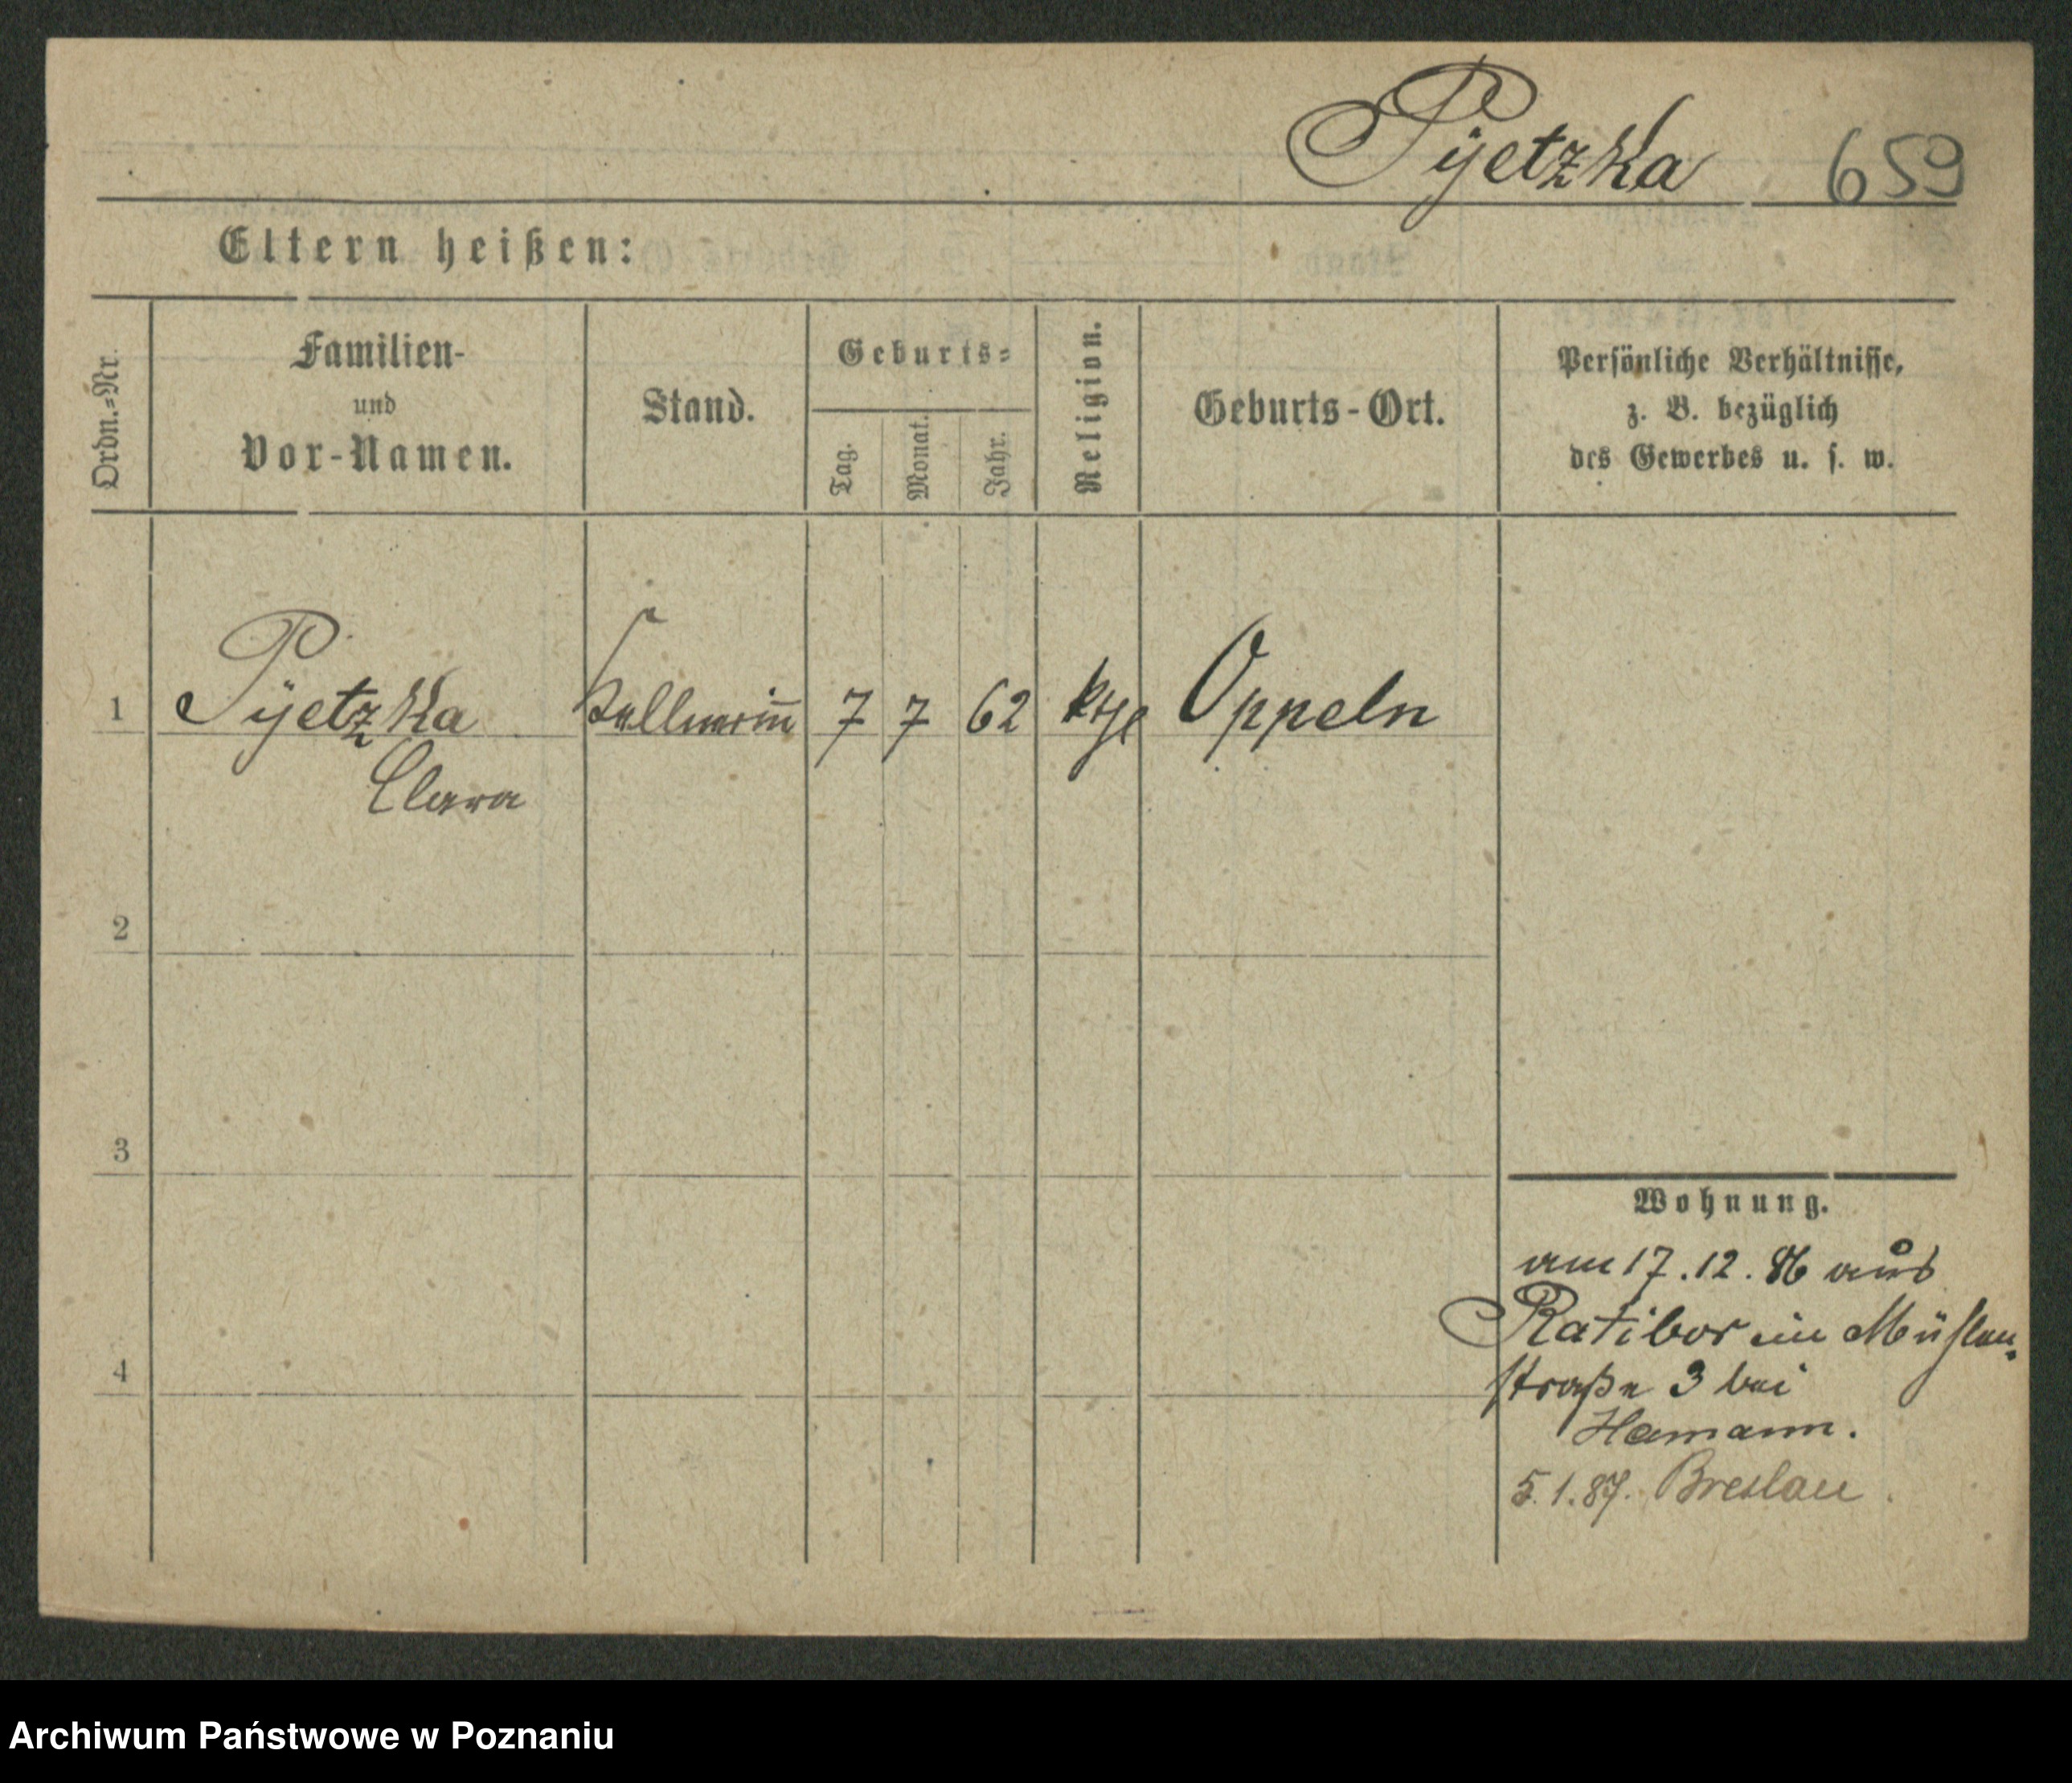 Pÿetzka 659
Eltern heißen:
Ordn.=Nr.
Familien-
und
Vor-Namen.
Stand.
Geburts=
Tag.
Monat.
Jahr.
Religion.
Geburts-Ort.
Persönliche Verhältnisse,
z. B. bezüglich
des Gewerbes u. s. w.
1 Pÿetzka Kellnerin̅ 7 7 62 Oppeln
Clara
2
3
4
Wohnung.
am 17.12.86 aus
Ratibor in Mühlen=
straße 3 bei
Hamann.
5.1.87. Breslau.
Archiwum Państwowe w Poznaniu